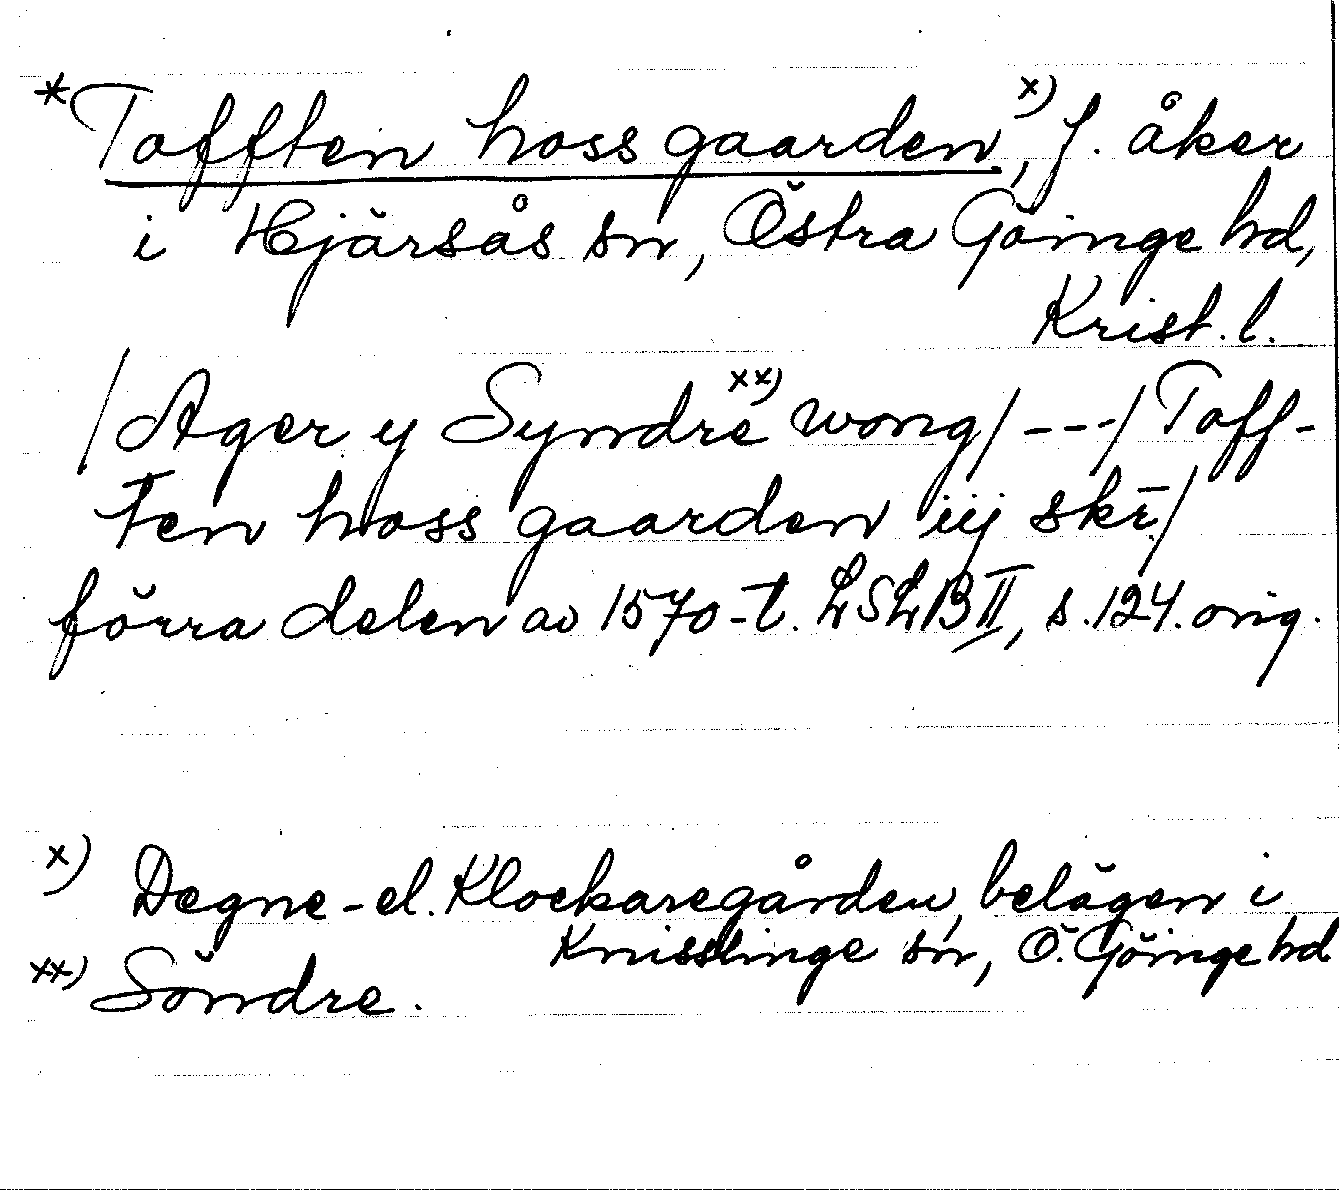 *Tofften hoss gaarden,x) f. åker
i Hjärsås sn, Östra Göinge hd,
Krist. l.
/Ager y Syndrexx) wong/---/Toff-
ten hoss gaarden iij skr̄./
förra delen av 1570-t. LSLB II, s. 124. orig.
x) Degne-el. Klockaregården, belägen i
Knisslinge sn, Ö. Göinge hd
xx) Söndre.